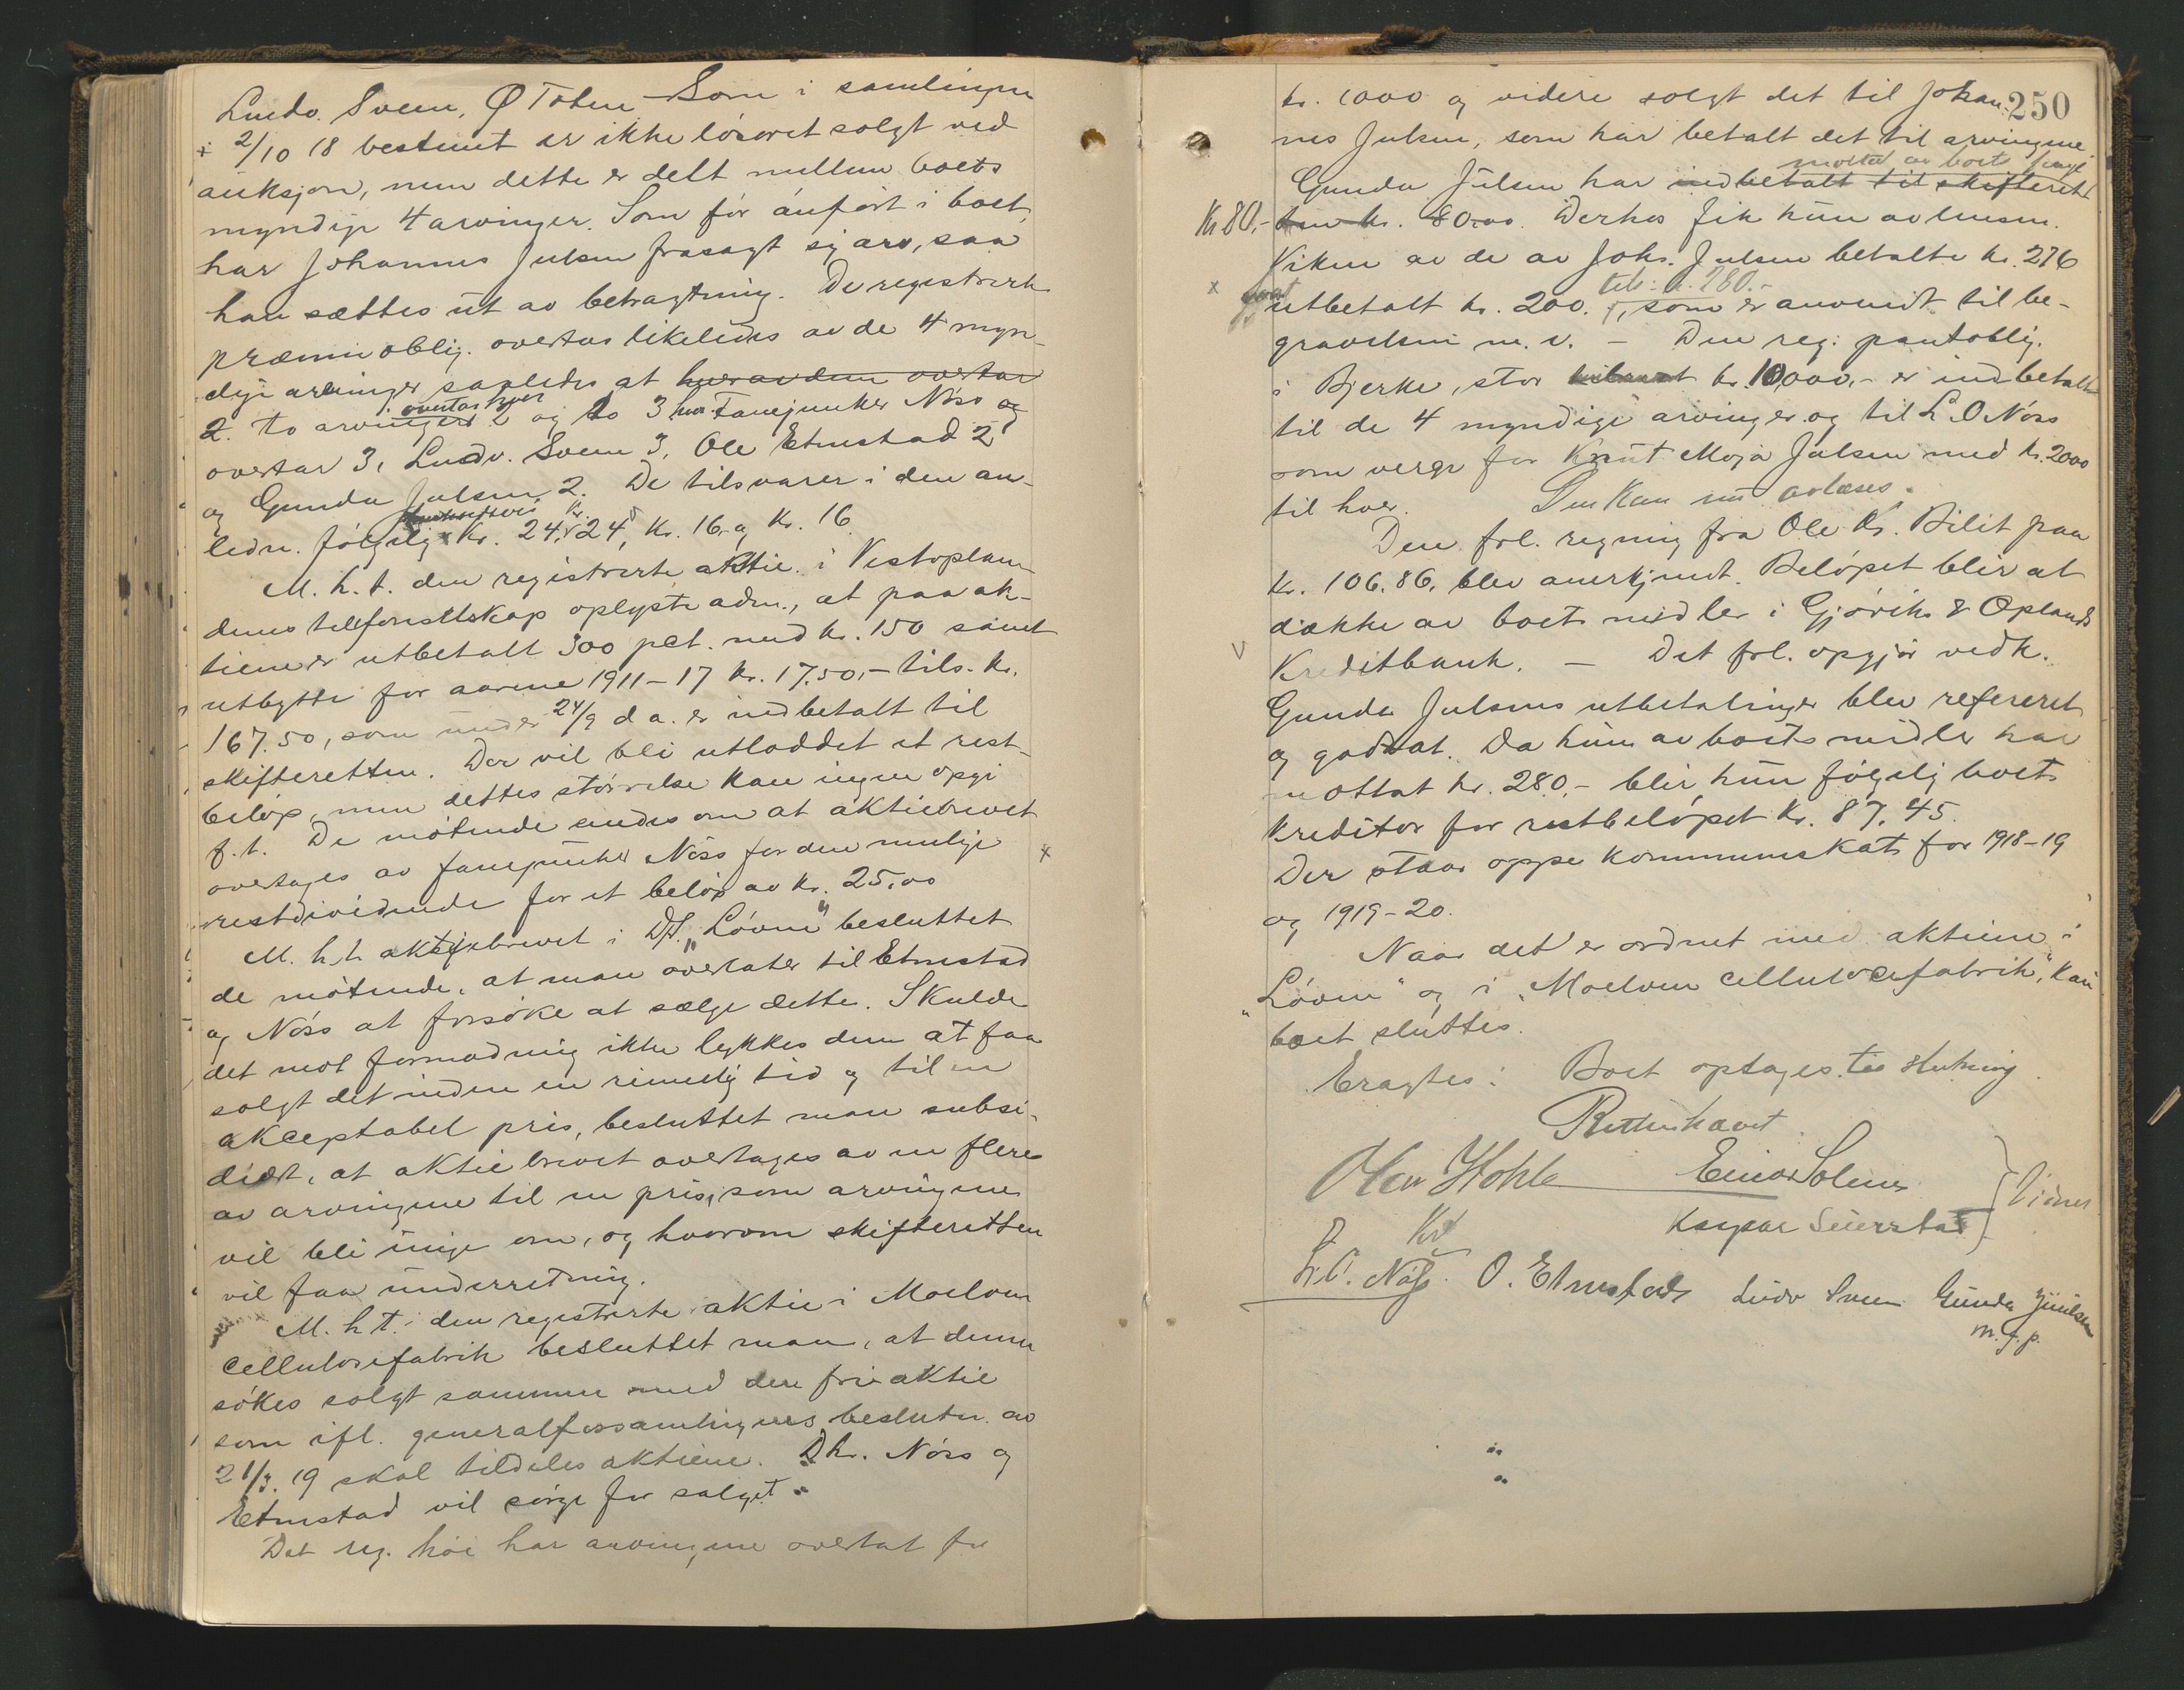 Ludv. Sveen, Ø Toten – Som i samlingen
2/10 18 bestemt er ikke løsøret solgt ved
auksjon, men dette er delt mellem boets
myndige 4 arvinger. Som før anført i boet,
har Johannes Julsen frasagt sig arv, saa
han sættes ut av betragtning. De registrerte
præmieoblig. overtas likeledes av de 4 myn-
dige arvinger saaledes at hver av dem overtar
overtar hver
2. to arvinger 2 og to 3 hver Fanejunker Nøss og
overtar 3, Ludv. Sveen 3, Ole Etnestad 2
og Gunda Julsen 2. De tilsvarer i den an-
ledn. følgelig Kr. 24, 24, Kr. 16 og Kr. 16
M. h. t. den registrerte aktie i Vestoplan-
denes telefonselskap oplyste adm., at paa ak-
tiene er utbetalt 300 pct. med kr. 150 samt
utbytte for aarene 1911–17 kr. 17.50,– tils. kr.
167.50, som under 24/9 d a. er indbetalt til
skifteretten. Der vil bli utloddet et rest-
beløp, men dettes størrelse kan ingen opgi
f. t. De møtende enedes om at aktiebrevet
overtages av fanejunker Nøss for den mulige
restdividende for et beløp av kr. 25,00
M. h. t. aktiebrevet i D/S. "Løvne" besluttet
de møtende, at man overlater til Etnestad
og Nøss at forsøke at sælge dette. Skulde
det mot formodning ikke lykkes dem at faa
solgt det inden en rimelig tid og til en
akceptabel pris, besluttet man subsi-
diært, at aktiebrevet overtages av en flere
av arvingene til en pris, som arvingene
vil bli enige om, og hvorom skifteretten
vil faa underretning.
M. h. t. den registrerte aktie i Moelven
cellulosefabrik besluttet man, at denne
søkes solgt sammen med den friaktie
som ifl. generalforsamlingens beslutn. av
21/3. 19 skal tildeles aktiene. Dhr. Nøss og
Etnestad vil sørge for salget.
Det reg. høi har arvingene overtat for
250
kr. 1000 og videre solgt det til Johan-
nes Julsen, som har betalt det til arvingene
mottat av boets penge
Gunda Julsen har indbetalt til skifteret
Kr 80,– kr. 80.00. Derhos fik hun av lensm.
Viken av de av Johs. Julsen betalte kr. 276
tils. kr. 280.–
utbetalt kr. 200. som er anvendt til be-
gravelsen m. v. – Den reg. pantoblig.
i Bjerke, stor kr. 10,000,– er indbetalt
til de 4 myndige arvinger og til L. O Nøss
som verge for Knut Moja Julsen med kr. 2000
til hver. Den kan nu avlæses.
Den frl. regning fra Ole Kr. Bilit paa
kr. 106.86, blev anerkjendt. Beløpet blir at
dække av boets midler i Gjøviks & Oplands
Kreditbank. – Det frl. opgjør vedk.
Gunda Julsens utbetalinger blev refereret
og godtat. Da hun av boets midler har
mottat kr. 280.– blir hun følgelig boets
kreditor for restbeløpet kr. 87.45.
Der staar oppe kommuneskat for 1918–19
og 1919–20.
Naar det er ordnet med aktiene i
"Løvne" og i "Moelven cellulosefabrik", kan
boet sluttes.
Eragtes: Boet optages til slutning.
Retten hævet.
Einar Solem
Kaspar Seierstad } Vidner
L. O. Nøss. O. Etnestad Ludv Sveen Gunda Juulsen
m. f. p.